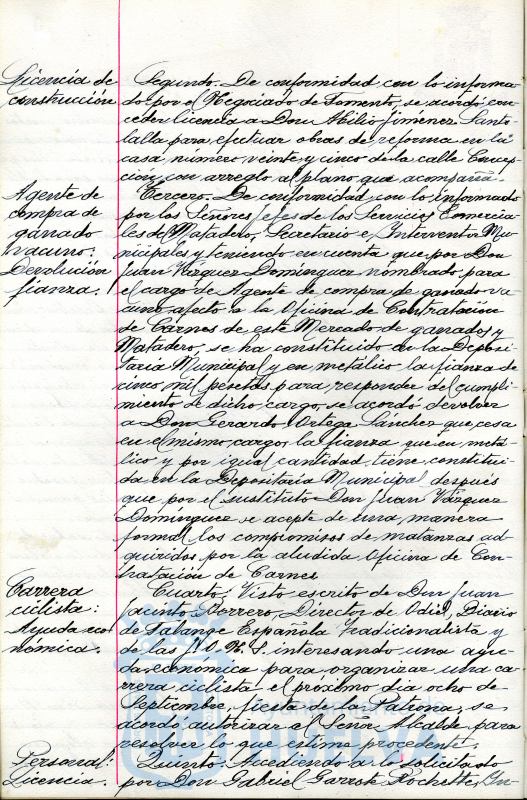 Licencia de
construcción
Segundo. De conformidad con lo informa-
do por el Negociado de Fomento, se acordó con-
ceder licencia a Don Abilio Jiménez Santo-
lalla para efectuar obras de reforma en la
casa número veinte y cinco de la calle Concep-
ción, con arreglo al plano que acompaña.
Agente de
compra de
ganado
vacuno.
Devolución
fianza.
Tercero. De conformidad con lo informado
por los Señores Jefes de los Servicios Comercia-
les del Matadero, Secretario e Interventor Mu-
nicipales y teniendo en cuenta que por Don
Juan Vázquez Domínguez nombrado para
el cargo de Agente de compra de ganado va-
cuno afecto a la Oficina de Contratación
de Carnes de este Mercado de ganados y
Matadero, se ha constituido en la Deposi-
taría Municipal y en metálico la fianza de
cinco mil pesetas para responder del cumpli-
miento de dicho cargo, se acordó devolver
a Don Gerardo Ortega Sánchez que cesa
en el mismo cargo, la fianza que en metá-
lico y por igual cantidad tiene constitui-
da en la Depositaría Municipal después
que por el sustituto Don Juan Vázquez
Domínguez se acepte de una manera
formal los compromisos de matanzas ad-
quiridos por la aludida Oficina de Con-
tratación de Carnes
Carrera
ciclista:
Ayuda eco-
nómica.
Cuarto. Visto escrito de Don Juan
Jacinto Herrero, Director de Odiel, Diario
de Falange Española Tradicionalista y
de las J.O.N.S. interesando una ayu-
da económica para organizar una ca-
rrera ciclista el próximo día ocho de
Septiembre, fiesta de la Patrona, se
acordó autorizar el Señor Alcalde para
resolver lo que estime procedente.
Personal:
Licencia.
Quinto. Accediendo a lo solicitado
por Don Gabriel Garrote Rochette, In-
Ayuntamiento de
HUELVA